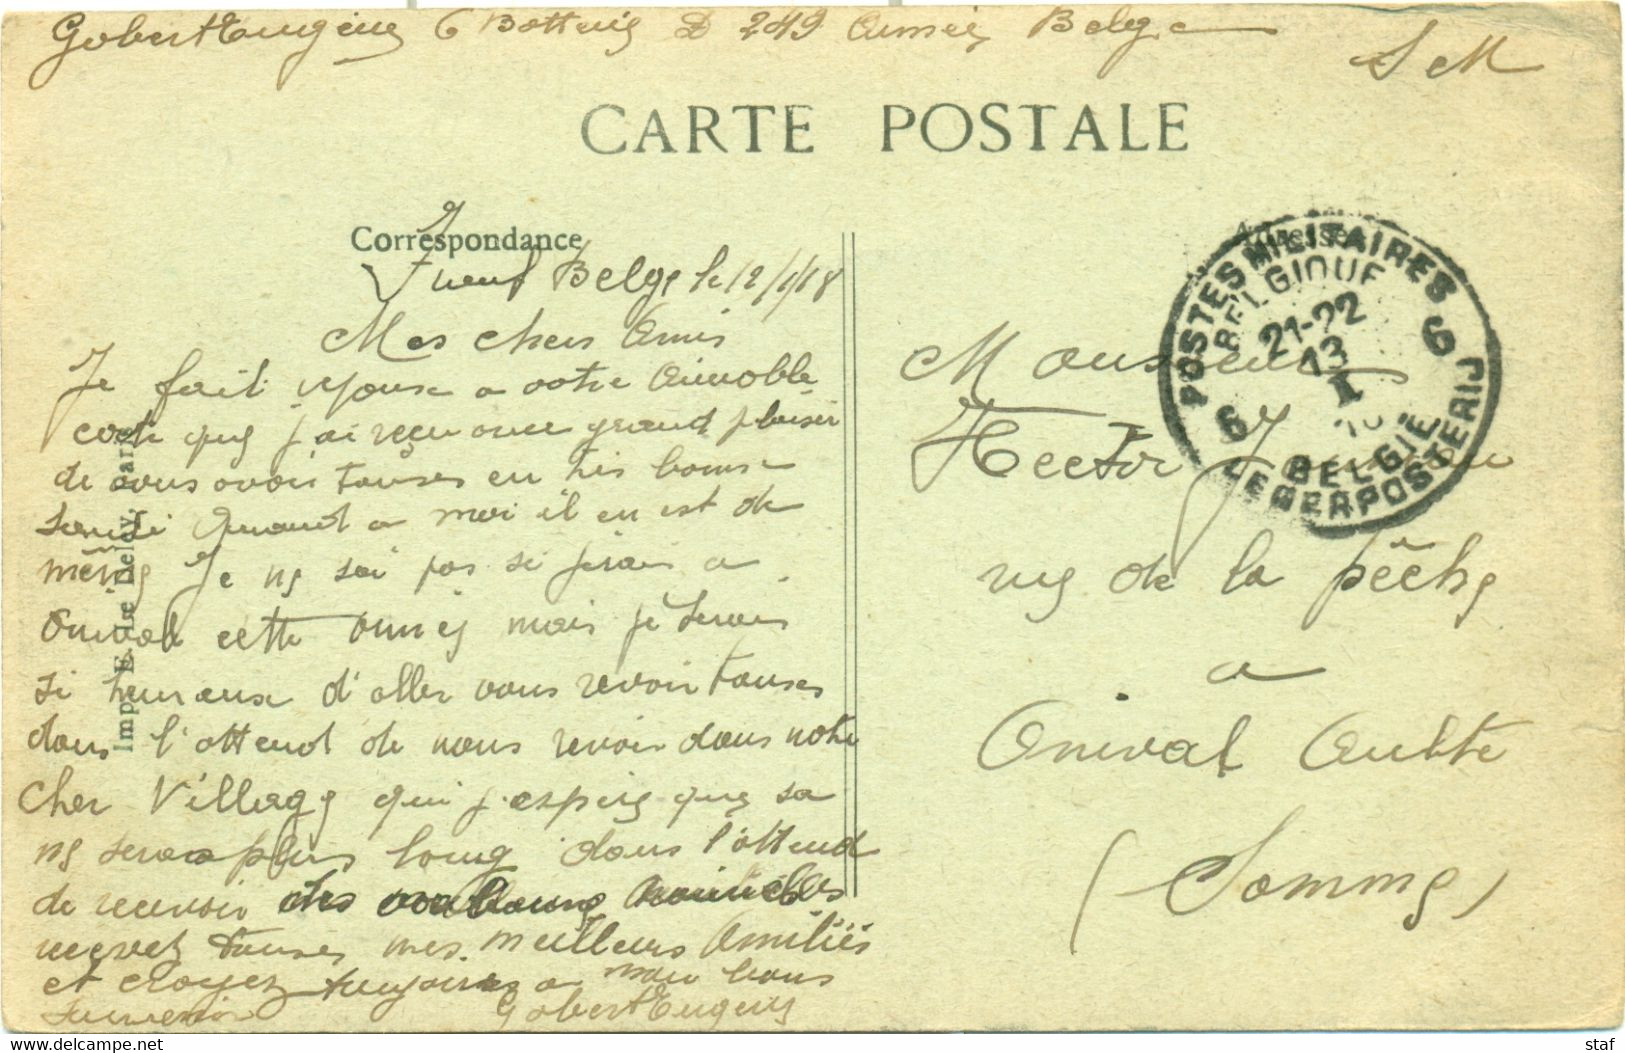 Gobert Eugène 6 Batterie D 249 Armée Belge
S M
CARTE POSTALE
Correspondance
Adresse
POSTES MILITAIRES 6
BELGIQUE
21-22
13
I
BELGIE
6 LEGERPOSTERIJ
Front Belge le 12/1/18
Mes chers Amis
Je fait reponse a votre Aimable
carte que j'ai reçu avec grand plaisir
de vous avoir touses en tres bonne
Santé Quand a moi il en est de
même Je ne sai pas si j'irai a
Onival cette année mais je serais
si heureuse d'aller vous revoir touses
dans l'attend de nous revoir dans notre
cher Village qui j.espère que sa
ne sera plus long dans l'attend
de recevoir des nouvelles
recevez touses mes meilleurs Amitiés
et croyez toujours a mon bons
Souvenir Gobert Eugène
Monsieur
Hector
rue de la pêche
a
Onival Aulte
(Somme)
Imp. E. Ise Deley, Paris
staf
www.delcampe.net